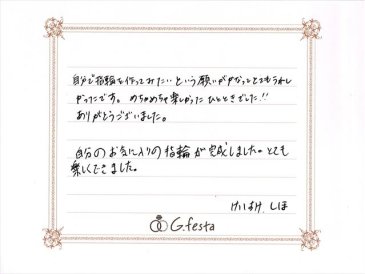 自分で指輪を作ってみたいという願いがかなってとてもうれし
かったです。めちゃめちゃ楽しかったひとときでした!!
ありがとうございました。
自分のお気に入りの指輪が完成しました。とても
楽しくできました。
けいすけ しほ
G.festa